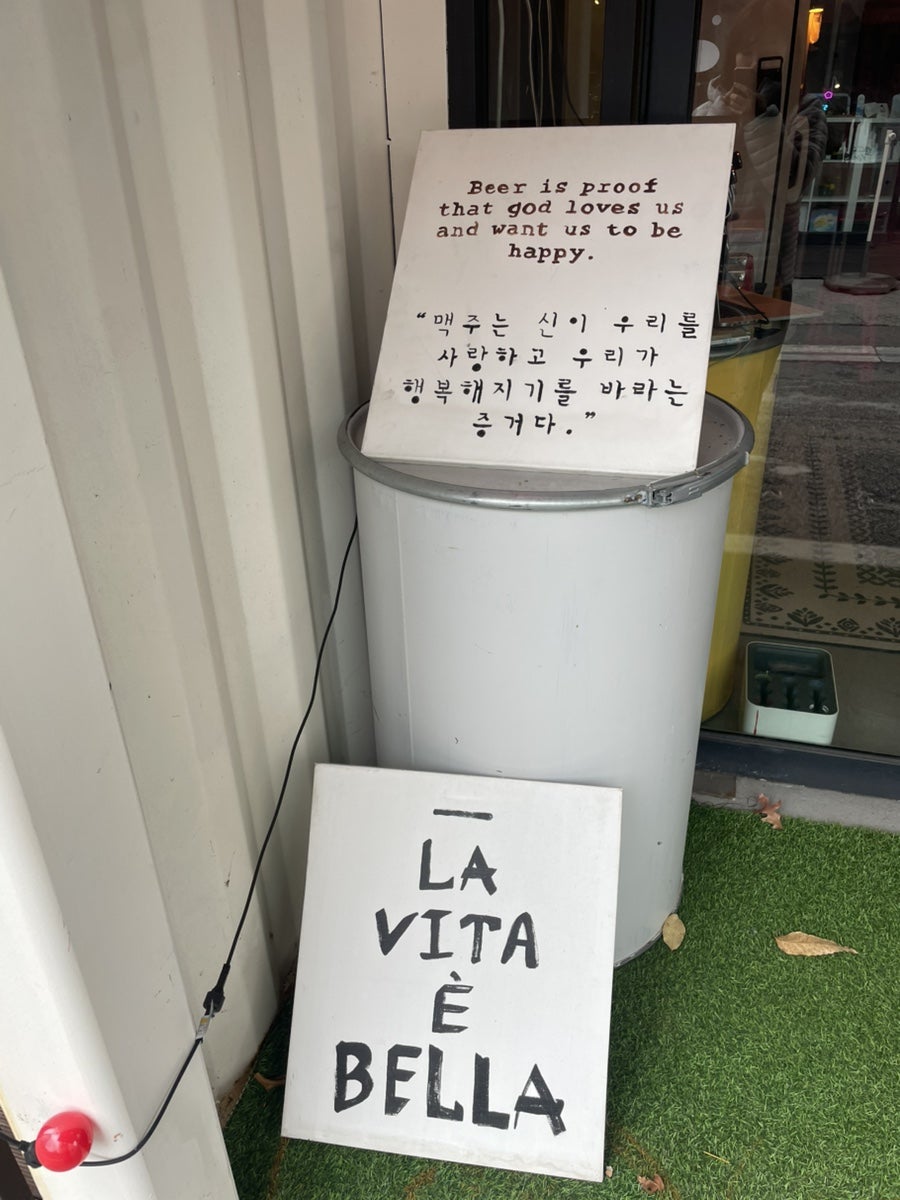 Beer is proof
that god loves us
and want us to be
happy.
“맥주는 신이 우리를
사랑하고 우리가
행복해지기를 바라는
증거다.”
LA
VITA
È
BELLA